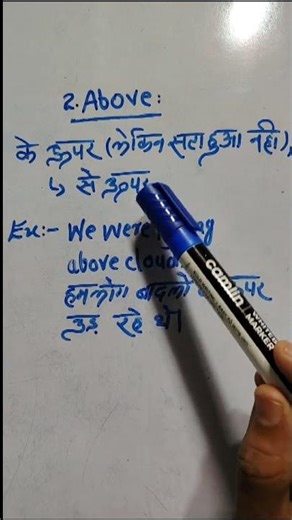 2. Above:
के ऊपर (लेकिन सटा हुआ नही),
↳ से ऊपर
Ex:- We were
above cloud
हमलोग बादलो ऊपर
उड़ रहे थे।
camlin
WHITEBOARD
MARKER